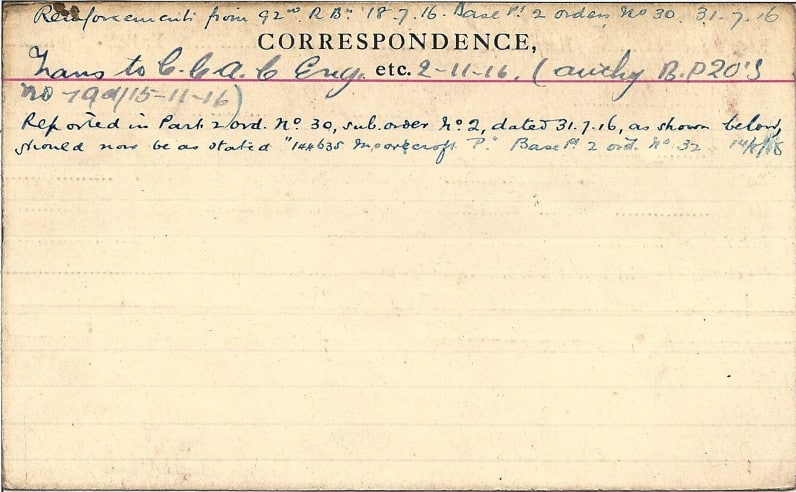 Reinforcements from 92nd R. Bn. 18.7.16. Base Pt. 2 orders No 30. 31.7.16
CORRESPONDENCE,
Trans to C.C.A.C Eng. etc. 2-11-16. (authy B.P20's
no 79d/15-11-16)
Reported in Part 2 ord. No. 30, sub. order No. 2, dated 31.7.16, as shown below,
should now be as stated "144635 Moorecroft P." Base Pt 2 ord. No. 32